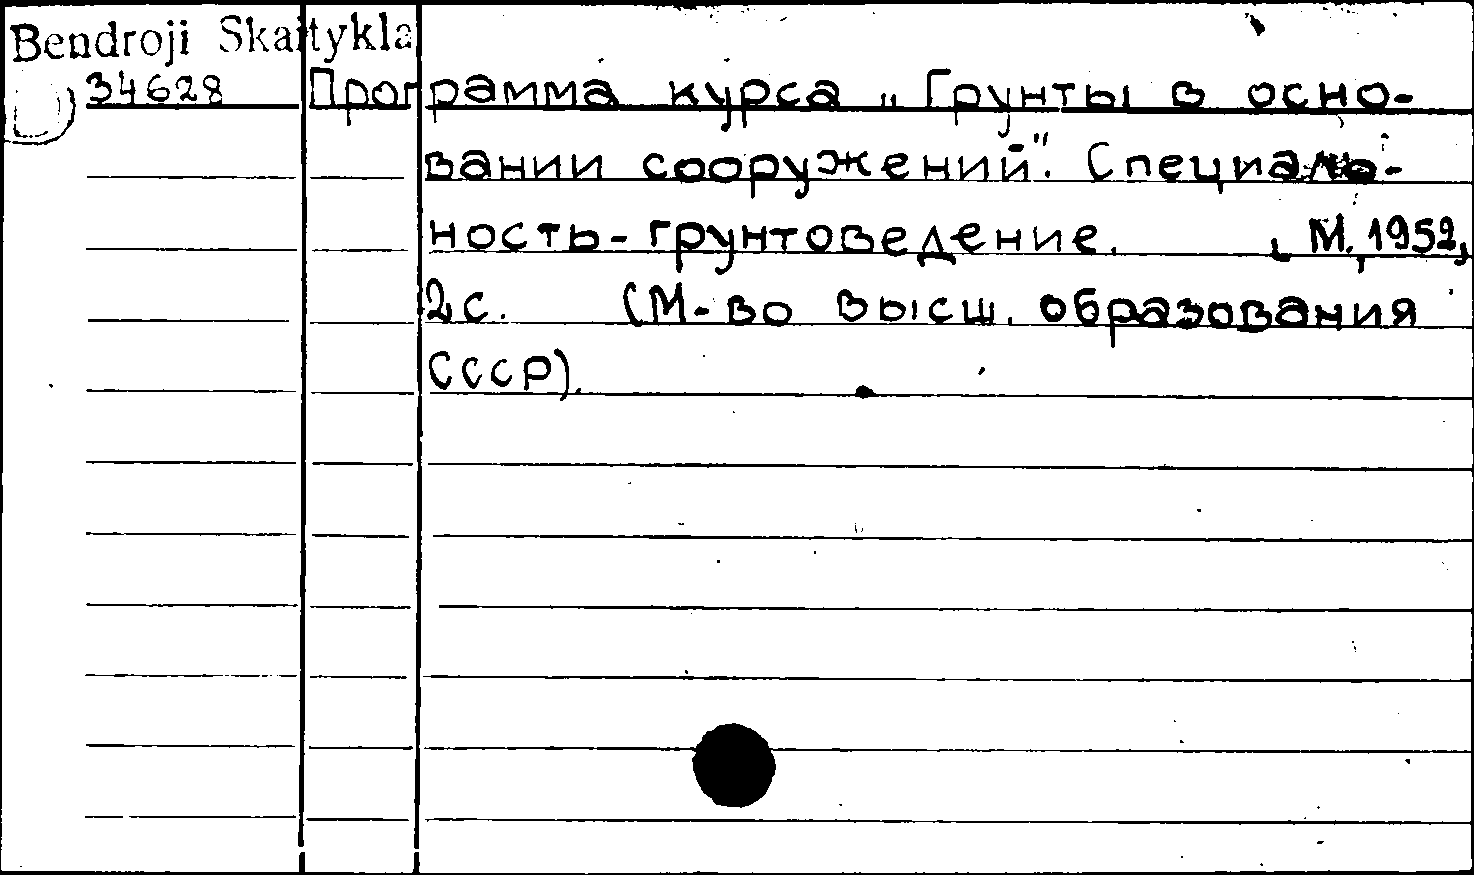 Bendroji Skaitykla
34628 Программа курса „Грунты в осно-
вании сооружений". Специаль-
ность-грунтоведение. , М., 1952,
2 с. (М-во высш. образования
СССР).